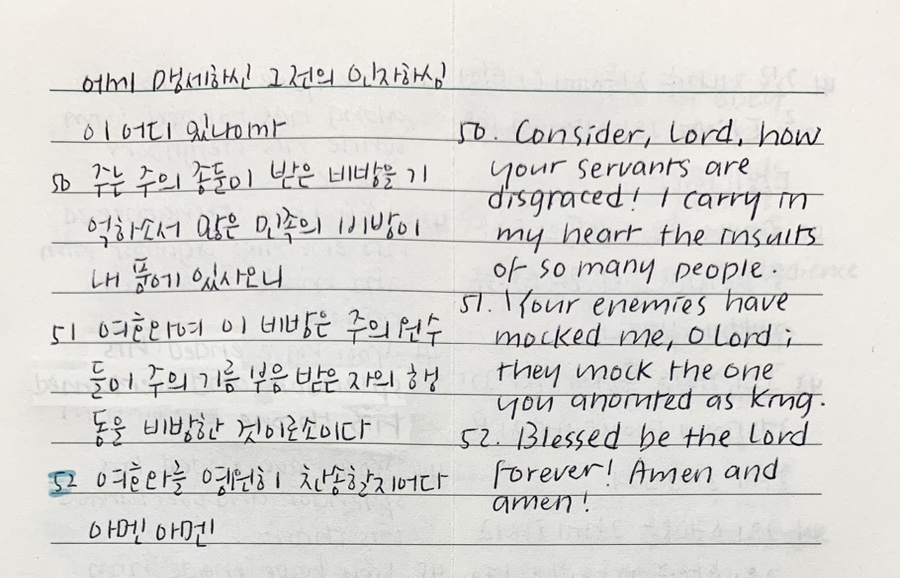 어찌 맹세하신 그전의 인자하심
이 어디 있나이까
50 주는 주의 종들이 받은 비방을 기
억하소서 많은 민족의 비방이
내 품에 있사오니
51 여호와여 이 비방은 주의 원수
들이 주의 기름 부음 받은 자의 행
동을 비방한 것이로소이다
52 여호와를 영원히 찬송할지어다
아멘 아멘
50. Consider, Lord, how
your servants are
disgraced! I carry in
my heart the insults
of so many people.
51. Your enemies have
mocked me, O Lord;
they mock the one
you anointed as king.
52. Blessed be the Lord
forever! Amen and
amen!